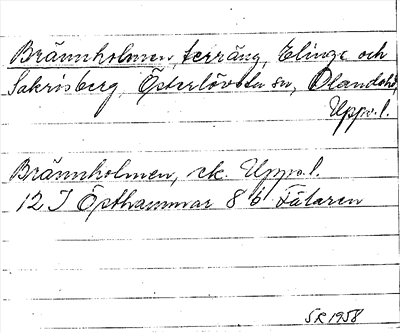 Brännholmen, terräng, Elinge och
Sakrisberg Österlövsta sn, Olandshd,
Uppl.
Brännholmen, ek. Uppl.
12 I Östhammar 8 b Fälaren
SR 1958